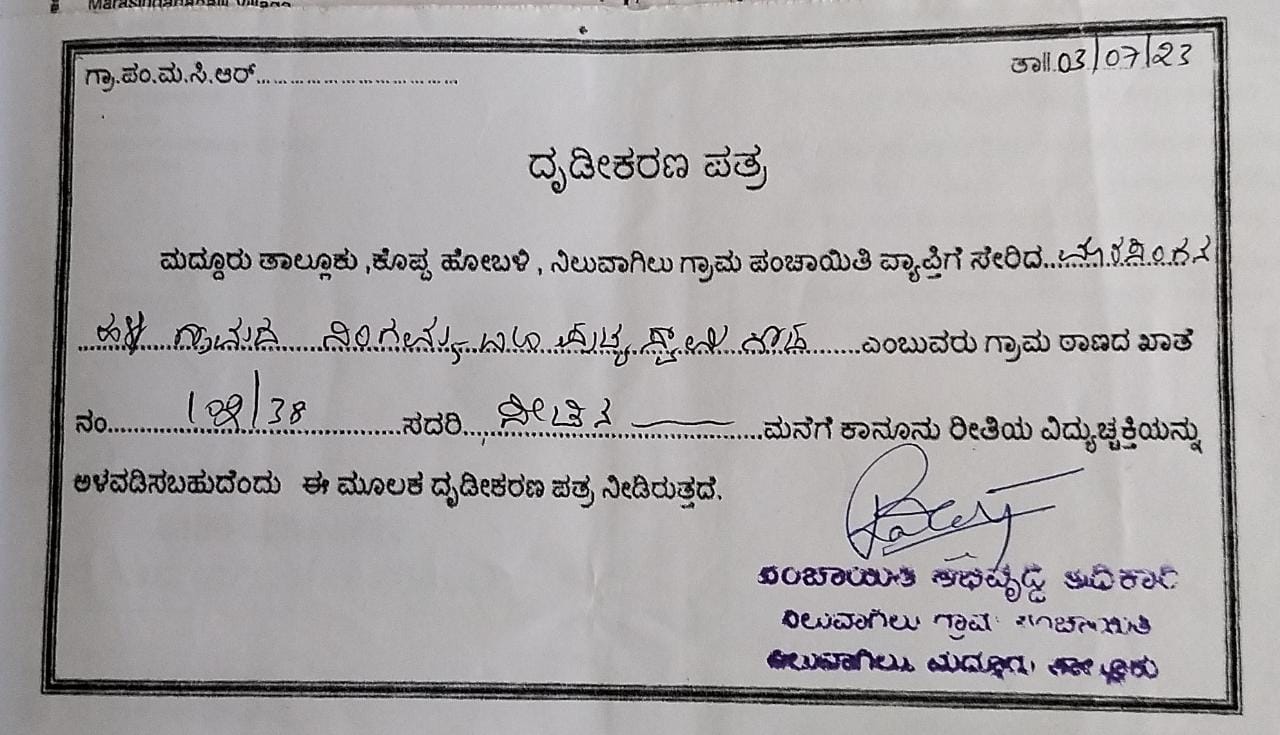 Marasinganahalli Village
ಗ್ರಾ.ಪಂ.ಮ.ಸಿ.ಆರ್................................ ತಾ||.03/07/23
ದೃಡೀಕರಣ ಪತ್ರ
ಮದ್ದೂರು ತಾಲ್ಲೂಕು ,ಕೊಪ್ಪ ಹೋಬಳಿ , ನಿಲುವಾಗಿಲು ಗ್ರಾಮ ಪಂಚಾಯಿತಿ ವ್ಯಾಪ್ತಿಗೆ ಸೇರಿದ..ಮಾರಸಿಂಗನ
ಹಳ್ಳಿ ಗ್ರಾಮದ ನಿಂಗಮ್ಮ ಎಂಬುವರು ಗ್ರಾಮ ಠಾಣದ ಖಾತೆ
ನಂ. /38 ಸದರಿ ಮನೆಗೆ ಕಾನೂನು ರೀತಿಯ ವಿದ್ಯುಚ್ಚಕ್ತಿಯನ್ನು
ಅಳವಡಿಸಬಹುದೆಂದು ಈ ಮೂಲಕ ದೃಡೀಕರಣ ಪತ್ರ ನೀಡಿರುತ್ತದೆ.
ಪಂಚಾಯಿತಿ ಅಭಿವೃದ್ಧಿ ಅಧಿಕಾರಿ
ನಿಲುವಾಗಿಲು ಗ್ರಾಮ ಪಂಚಾಯಿತಿ
ನಿಲುವಾಗಿಲು, ಮದ್ದೂರು ತಾಲ್ಲೂಕು